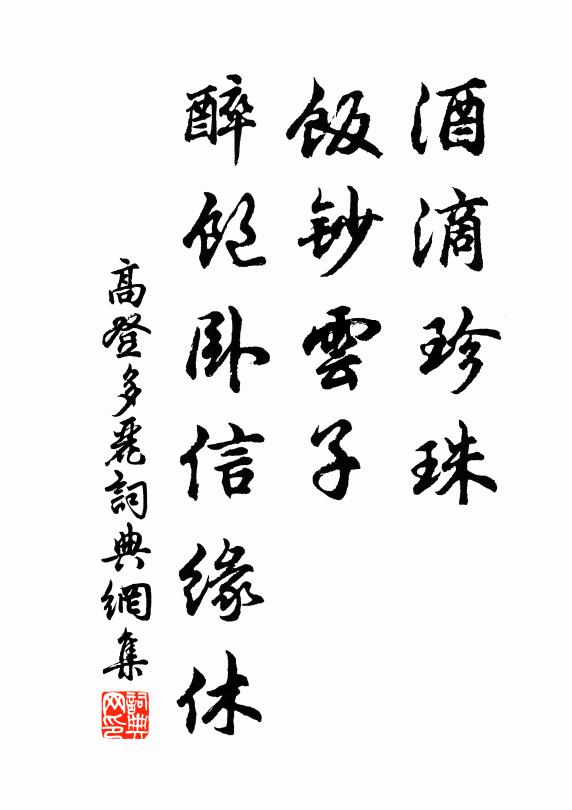 酒滴珍珠
飯鈔雲子
醉飽臥信緣休
高登多麗詞典網集
詞典網印